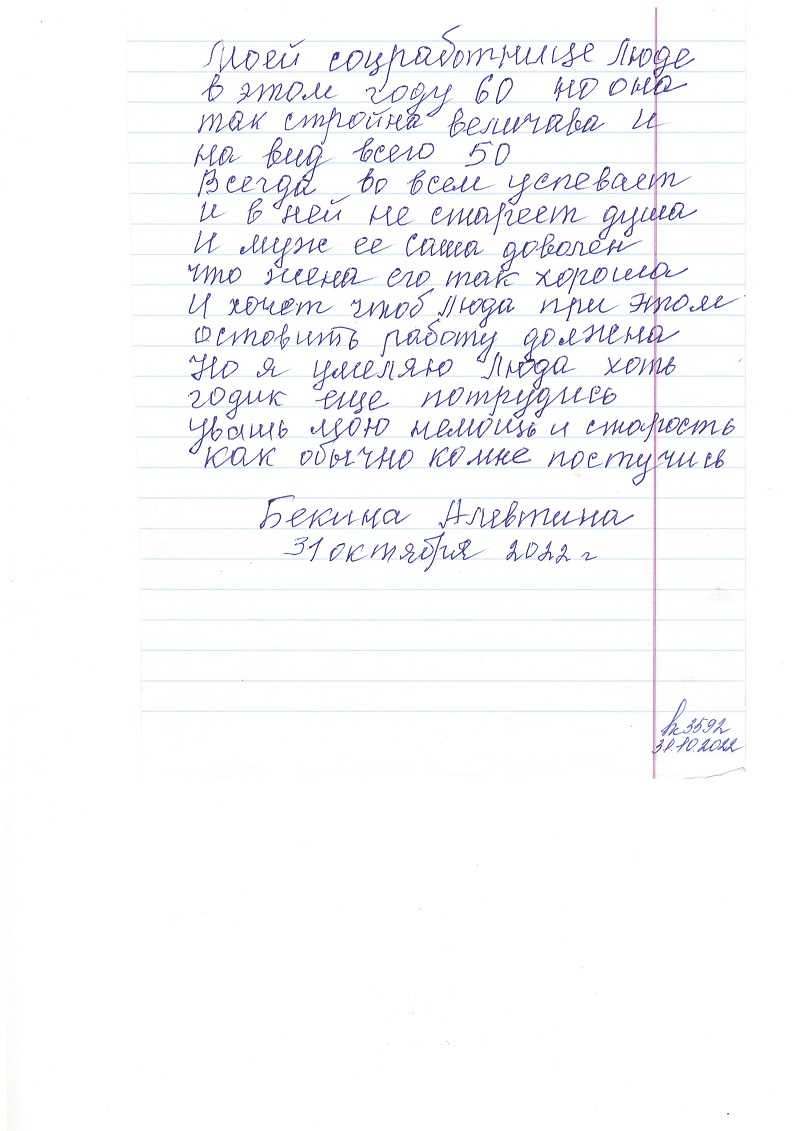 Моей соцработнице Люде
в этом году 60 но она
так стройна величава и
на вид всего 50
Всегда во всем успевает
и в ней не стареет душа
И муж ее Саша доволен
что жена его так хороша
И хочет чтоб Люда при этом
остовить работу должена
Но я умеляю Люда хоть
годик еще потрудись
уваш мою немощь и старость
как обычно ко мне постучись
Бекина Алевтина
31 октября 2022 г
вх 3592
31.10.2022